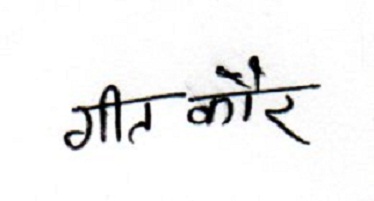 गीत कौर